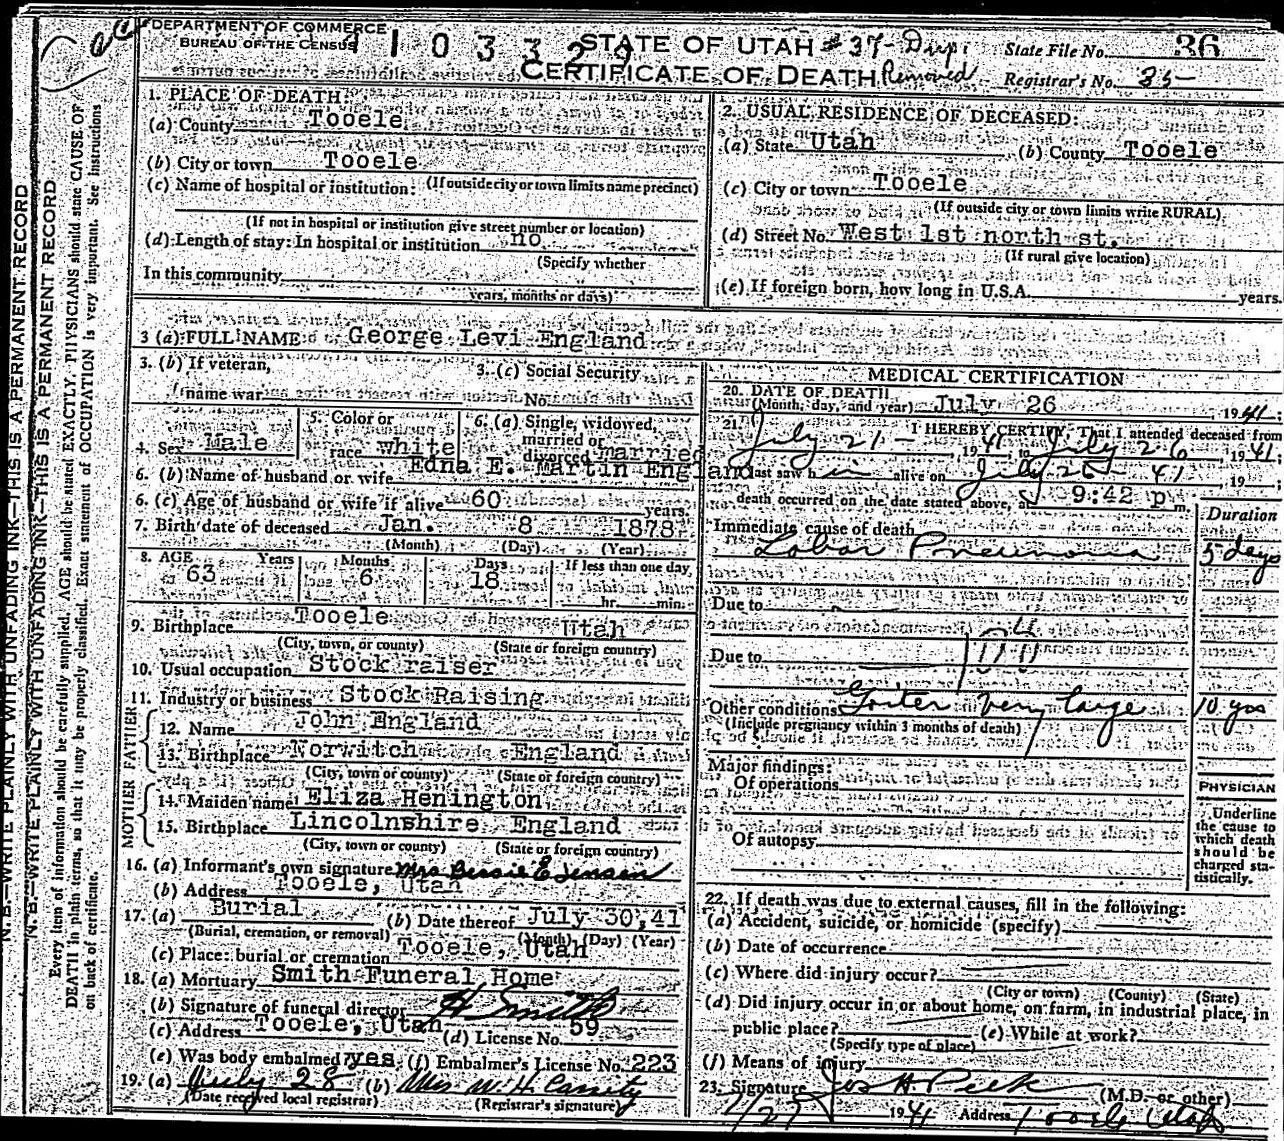 DEPARTMENT OF COMMERCE
BUREAU OF THE CENSUS
103329
STATE OF UTAH #37- Dupi
CERTIFICATE OF DEATH Removed
State File No. 36
Registrar's No. 35-
1. PLACE OF DEATH:
(a) County Tooele
(b) City or town Tooele
(If outside city or town limits name precinct)
(c) Name of hospital or institution:
(If not in hospital or institution give street number or location)
(d) Length of stay: In hospital or institution no
(Specify whether
In this community
years, months or days)
2. USUAL RESIDENCE OF DECEASED:
(a) State Utah (b) County Tooele
(c) City or town Tooele
(If outside city or town limits write RURAL)
(d) Street No. West 1st north st.
(If rural give location)
(e) If foreign born, how long in U.S.A. years.
3 (a) FULL NAME George Levi England
3. (b) If veteran,
name war
3. (c) Social Security
No.
4. Sex Male
5. Color or
race white
6. (a) Single, widowed,
married or
divorced married
6. (b) Name of husband or wife Edna E. Martin England
6. (c) Age of husband or wife if alive 60 years.
7. Birth date of deceased Jan. 8 1878
(Month) (Day) (Year)
8. AGE Years Months Days If less than one day
63 6 18
hr. min.
9. Birthplace Tooele Utah
(City, town, or county) (State or foreign country)
10. Usual occupation Stock raiser
11. Industry or business Stock Raising
FATHER
12. Name John England
13. Birthplace Norwitch England
(City, town or county) (State or foreign country)
MOTHER
14. Maiden name Eliza Henington
15. Birthplace Lincolnshire England
(City, town or county) (State or foreign country)
16. (a) Informant's own signature Mrs Bessie E Jensen
(b) Address Tooele, Utah
17. (a) Burial (b) Date thereof July 30, 41
(Burial, cremation, or removal) (Month) (Day) (Year)
(c) Place: burial or cremation Tooele, Utah
18. (a) Mortuary Smith Funeral Home
(b) Signature of funeral director H Smith
(c) Address Tooele, Utah (d) License No. 59
(e) Was body embalmed? yes (f) Embalmer's License No. 223
19. (a) July 28 (b) Mrs W. H. Cassity
(Date received local registrar) (Registrar's signature)
MEDICAL CERTIFICATION
20. DATE OF DEATH
(Month, day, and year) July 26, 1941
21. I HEREBY CERTIFY, That I attended deceased from
July 21 - , 1941, to July 26, 1941;
I last saw him alive on July 26 - 41, 19 ;
death occurred on the date stated above, at 9:42 p m.
Duration
Immediate cause of death
Lobar Pneumonia 5 days
Due to
Due to
Other conditions Goiter very large 10 yrs
(Include pregnancy within 3 months of death)
Major findings:
Of operations
Of autopsy
PHYSICIAN
Underline
the cause to
which death
should be
charged sta-
tistically.
22. If death was due to external causes, fill in the following:
(a) Accident, suicide, or homicide (specify)
(b) Date of occurrence
(c) Where did injury occur?
(City or town) (County) (State)
(d) Did injury occur in or about home, on farm, in industrial place, in
public place? (e) While at work?
(Specify type of place)
(f) Means of injury
23. Signature Jos H. Peck
(M.D. or other)
7/27 1941 Address Tooele Utah
N. B.—WRITE PLAINLY WITH UNFADING INK—THIS IS A PERMANENT RECORD
N. B.—WRITE PLAINLY WITH UNFADING INK—THIS IS A PERMANENT RECORD
Every item of information should be carefully supplied. AGE should be stated EXACTLY. PHYSICIANS should state CAUSE OF
DEATH in plain terms, so that it may be properly classified. Exact statement of OCCUPATION is very important. See instructions
on back of certificate.